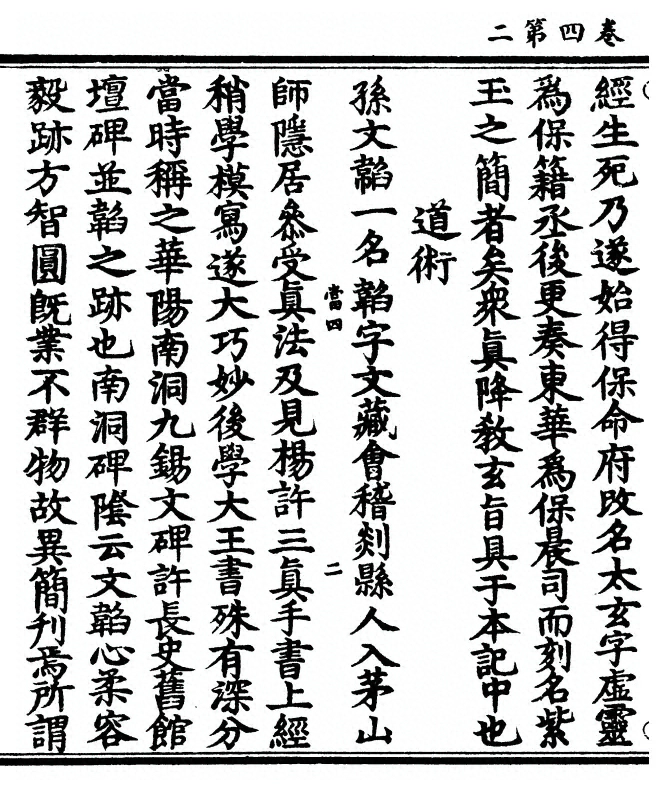 二第四卷
經生死乃遂始得保命府改名太玄字虛靈
爲保籍丞後更奏東華爲保晨司而刻名紫
玉之簡者矣衆眞降敎玄旨具于本記中也
道術
孫文韜一名韜字文藏會稽剡縣人入茅山
當四
二
師隱居叅受眞法及見楊許三眞手書上經
稍學模寫遂大巧妙後學大王書殊有深分
當時稱之華陽南洞九錫文碑許長史舊館
壇碑並韜之跡也南洞碑陰云文韜心柔容
毅跡方智圓旣業不群物故異簡刋焉所謂